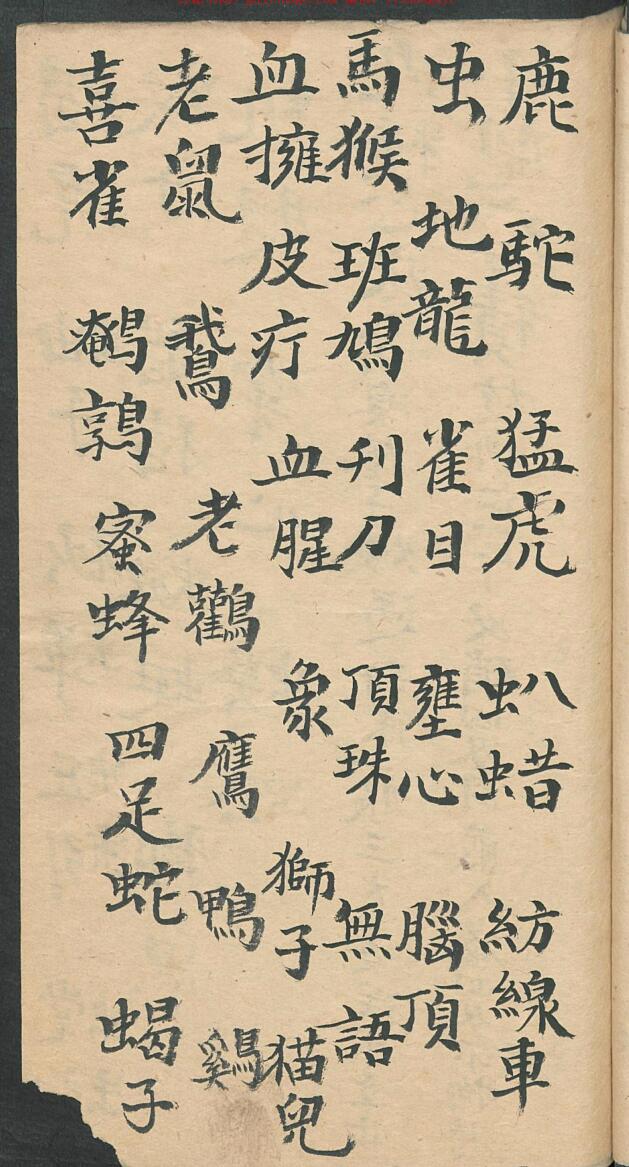 鹿 駝 猛虎 虯蜡 紡線車
虫 地龍 雀目 壅心 腦頂
馬猴 班鳩 刋刀 頂珠 無語
血擁 皮疔 血腥 象 獅子 猫兒
老鼠 鵞 老鸛 鷹 鴨 鷄
喜雀 鵪鶉 蜜蜂 四足蛇 蝎子